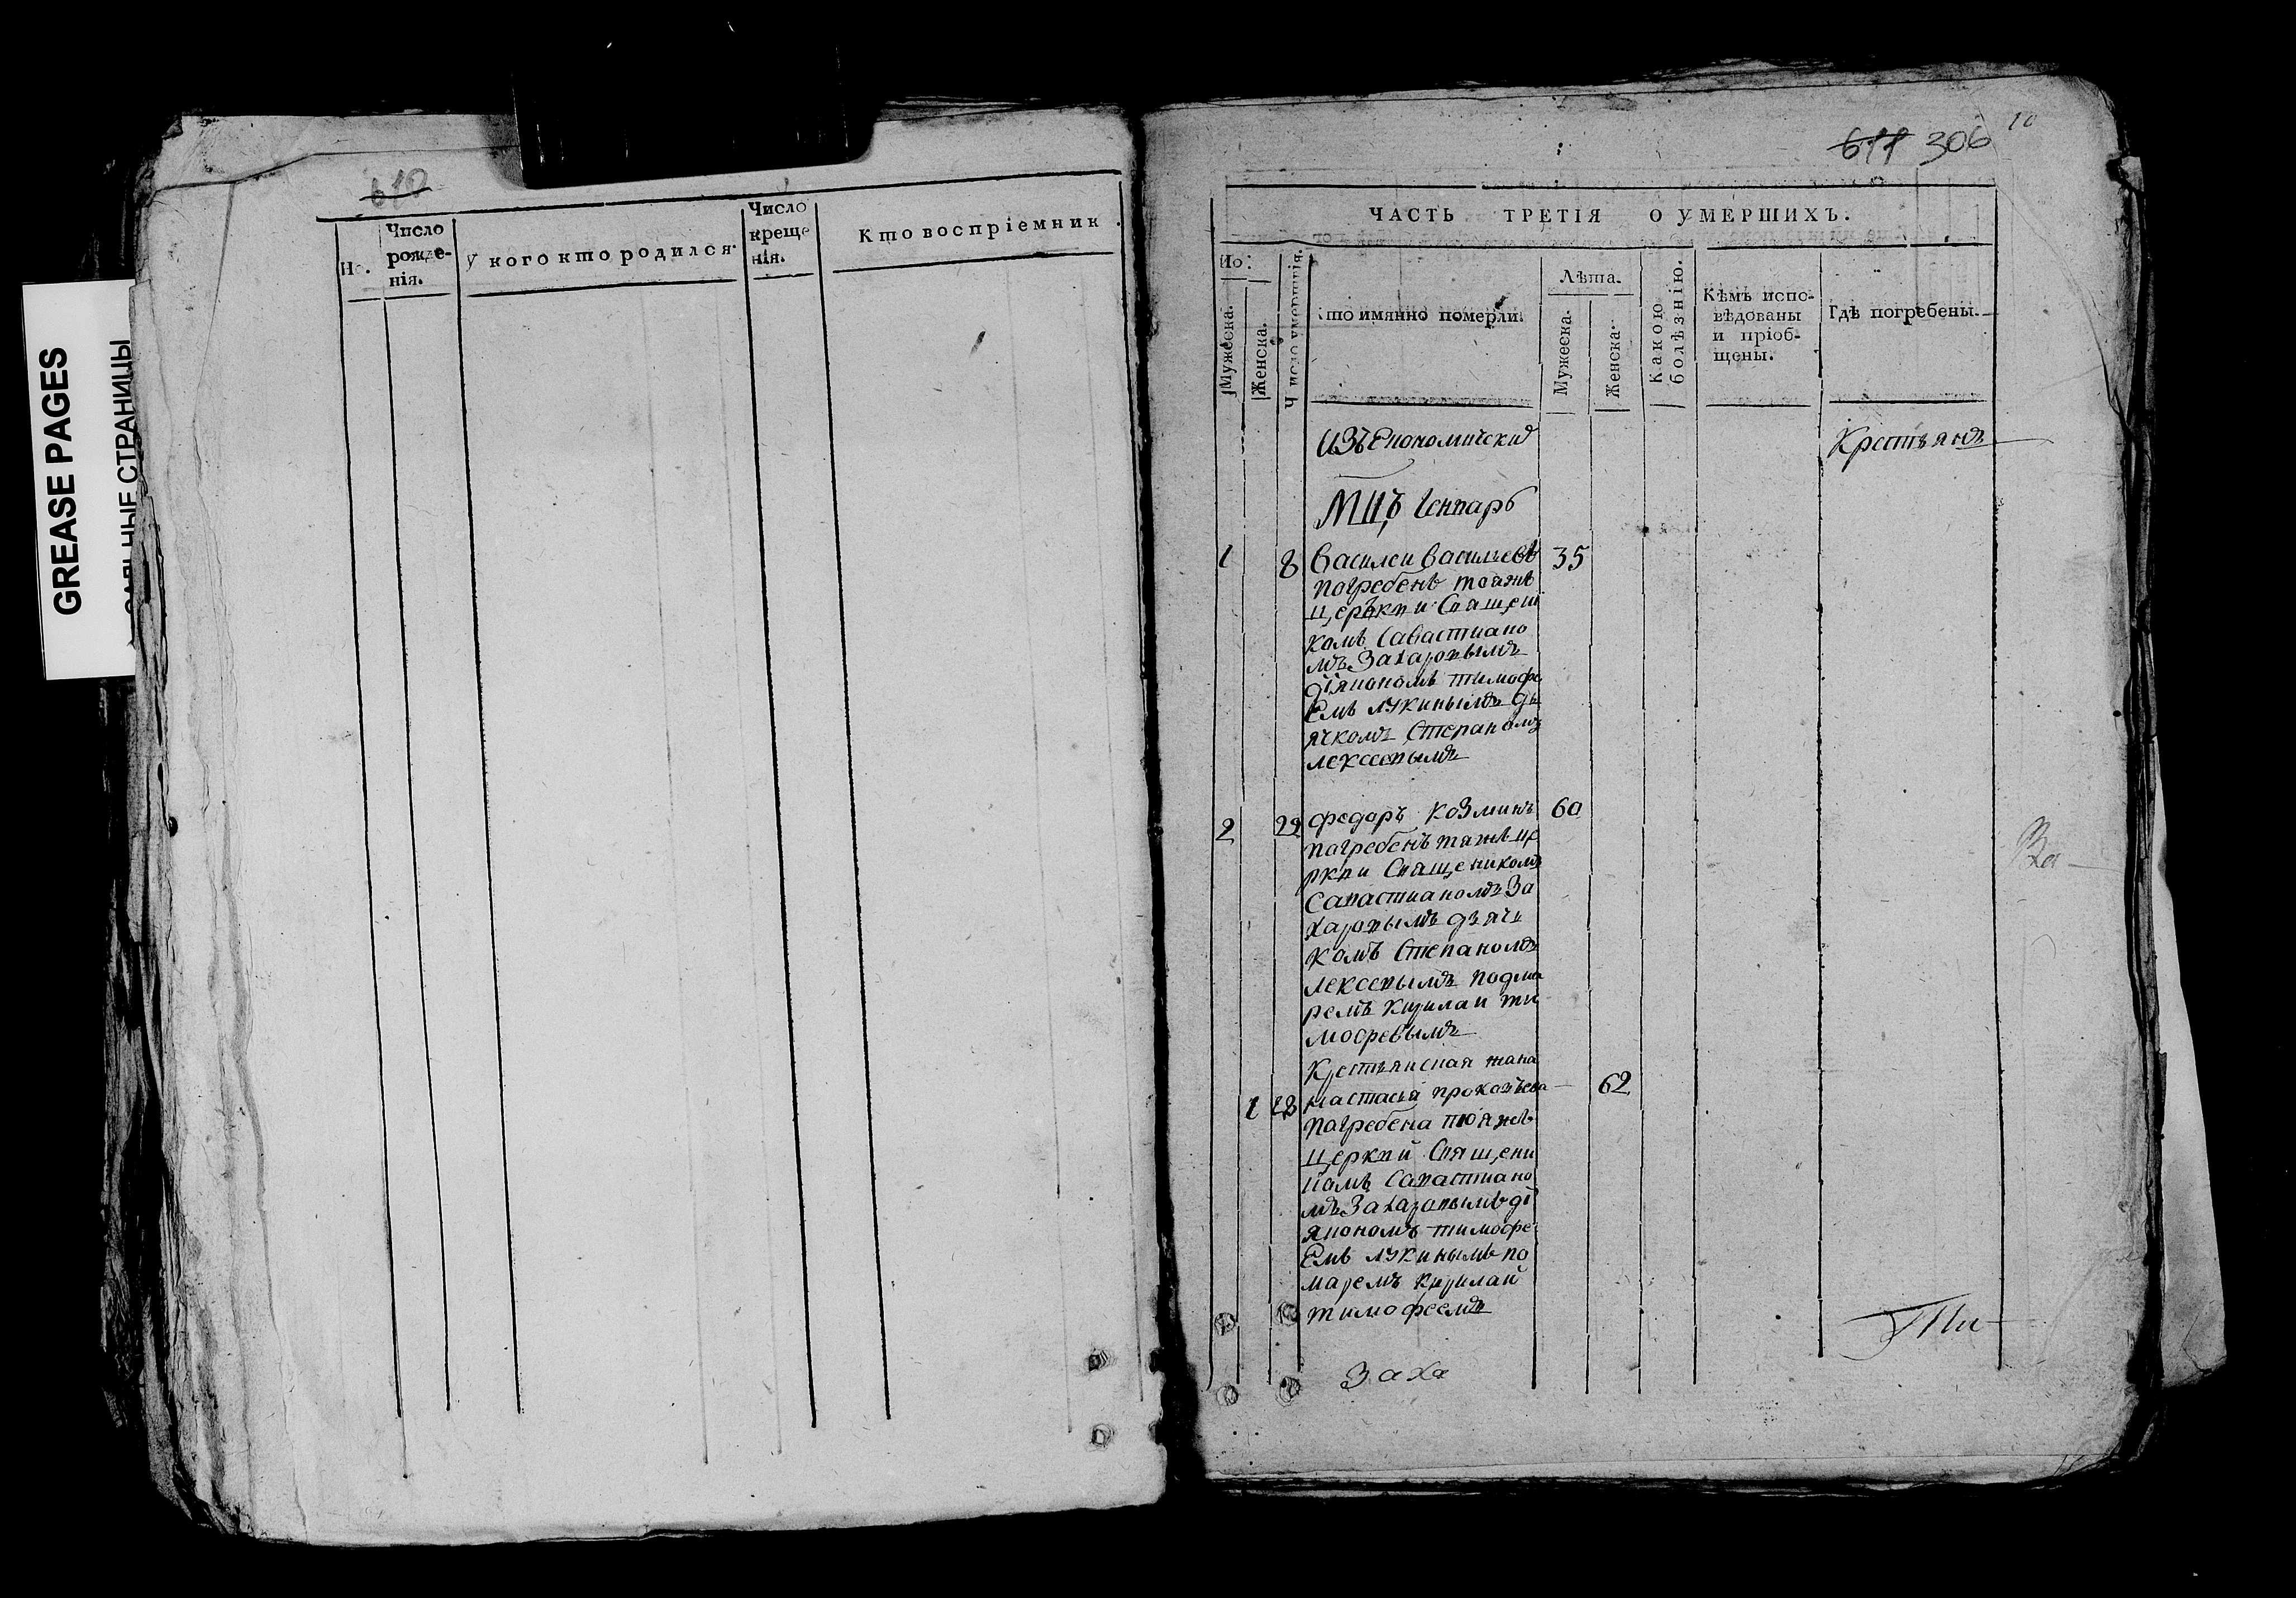 GREASE PAGES
НЫЕ СТРАНИЦЫ
610
Но.
Число
рожде-
нія.
у кого кто родился.
Число
креще
нія.
Кто воспріемник
10
611 306
ЧАСТЬ ТРЕТІЯ О УМЕРШИХЪ.
Но:
Мужеска.
Женска.
Число умершія.
кто имянно померли.
Лѣта.
Мужеска.
Женска.
Какою
болѣзнію.
Кѣмъ испо-
вѣдованы
и пріоб-
щены.
Гдѣ погребены.
изъ Економически
Крестьянъ
МЦЪ Генварь
1 8 Василеи Васильевъ 35
погребенъ тояжъ
церъкви Священи
комъ Савастиано
мъ Захаровымъ
діякономъ тимофе
Емъ лукинымъ дь
ячкомъ Степаномъ
лексеевымъ
2 22 федоръ Козминъ 60
погребенъ таяжъ це
ркви Священиком
Савастианомъ За
харовымъ дьяч
комъ Степаномъ
лексевымъ
ремъ Кирилаи ти
мофеевымъ
Крестьянская жана
1 28 настасья прокофьева 62
погребена тояжъ
церкви Священи
комъ Савастиано
мъ Захаровымъ ді
якономъ тимофе
Емъ лукинымъ по
маремъ Кирилай
тимофеемъ
Заха